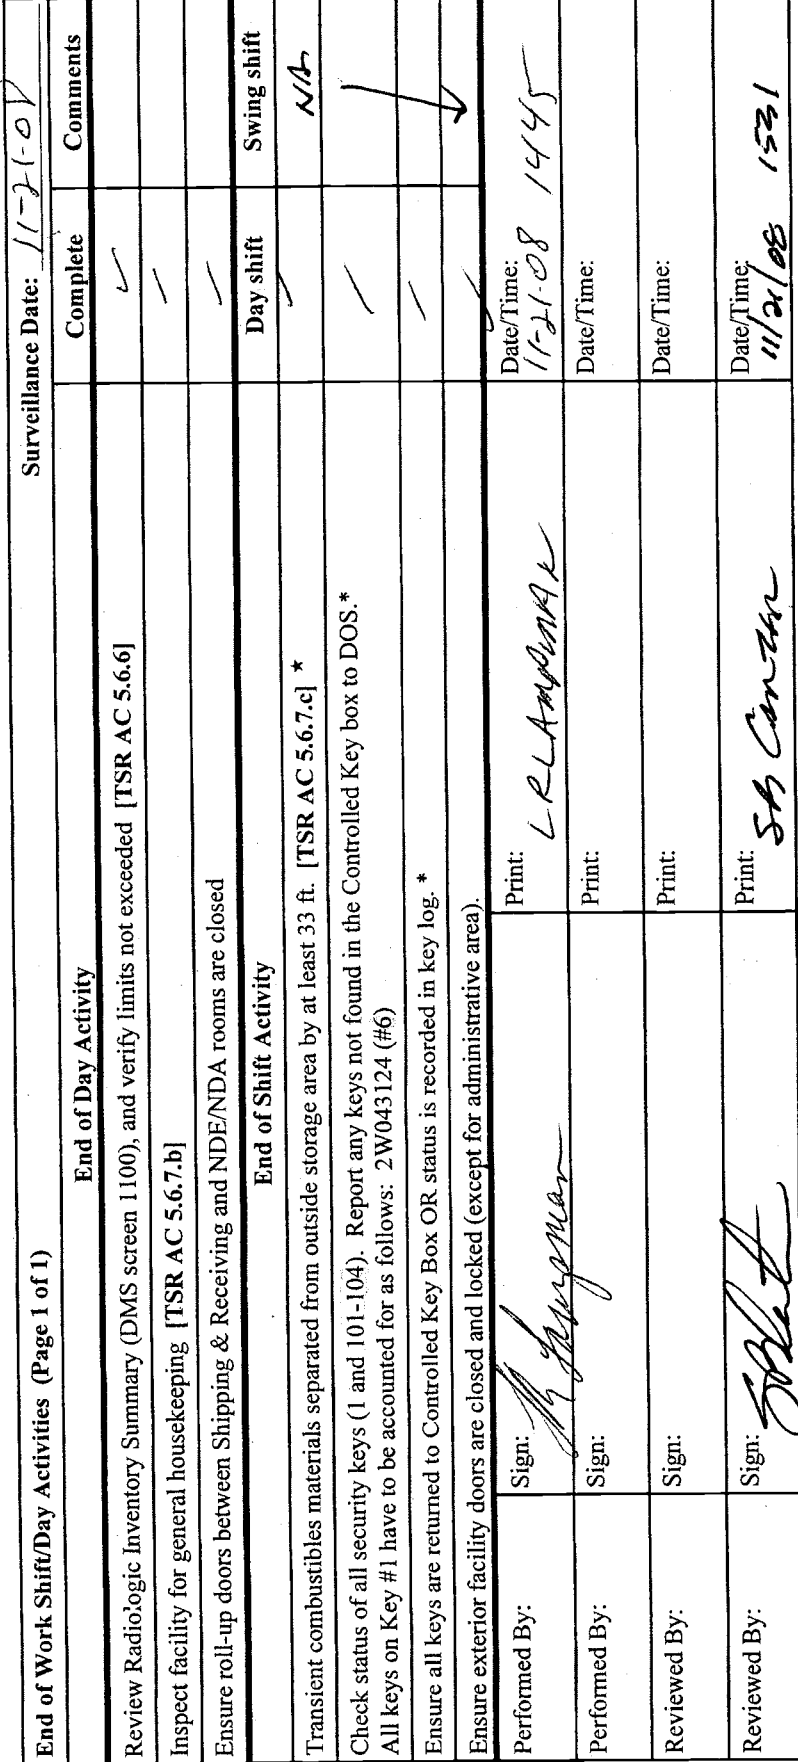 End of Work Shift/Day Activities (Page 1 of 1) Surveillance Date: 11-21-08
End of Day Activity Complete Comments
Review Radiologic Inventory Summary (DMS screen 1100), and verify limits not exceeded [TSR AC 5.6.6] ✓
Inspect facility for general housekeeping [TSR AC 5.6.7.b]
Ensure roll-up doors between Shipping & Receiving and NDE/NDA rooms are closed
End of Shift Activity Day shift Swing shift
Transient combustibles materials separated from outside storage area by at least 33 ft. [TSR AC 5.6.7.c] * NA
Check status of all security keys (1 and 101-104). Report any keys not found in the Controlled Key box to DOS.*
All keys on Key #1 have to be accounted for as follows: 2W043124 (#6)
Ensure all keys are returned to Controlled Key Box OR status is recorded in key log. *
Ensure exterior facility doors are closed and locked (except for administrative area).
Performed By: Sign: Print: Date/Time:
11-21-08 1445
Performed By: Sign: Print: Date/Time:
Reviewed By: Sign: Print: Date/Time:
Reviewed By: Sign: Print: Date/Time:
11/21/08 1531